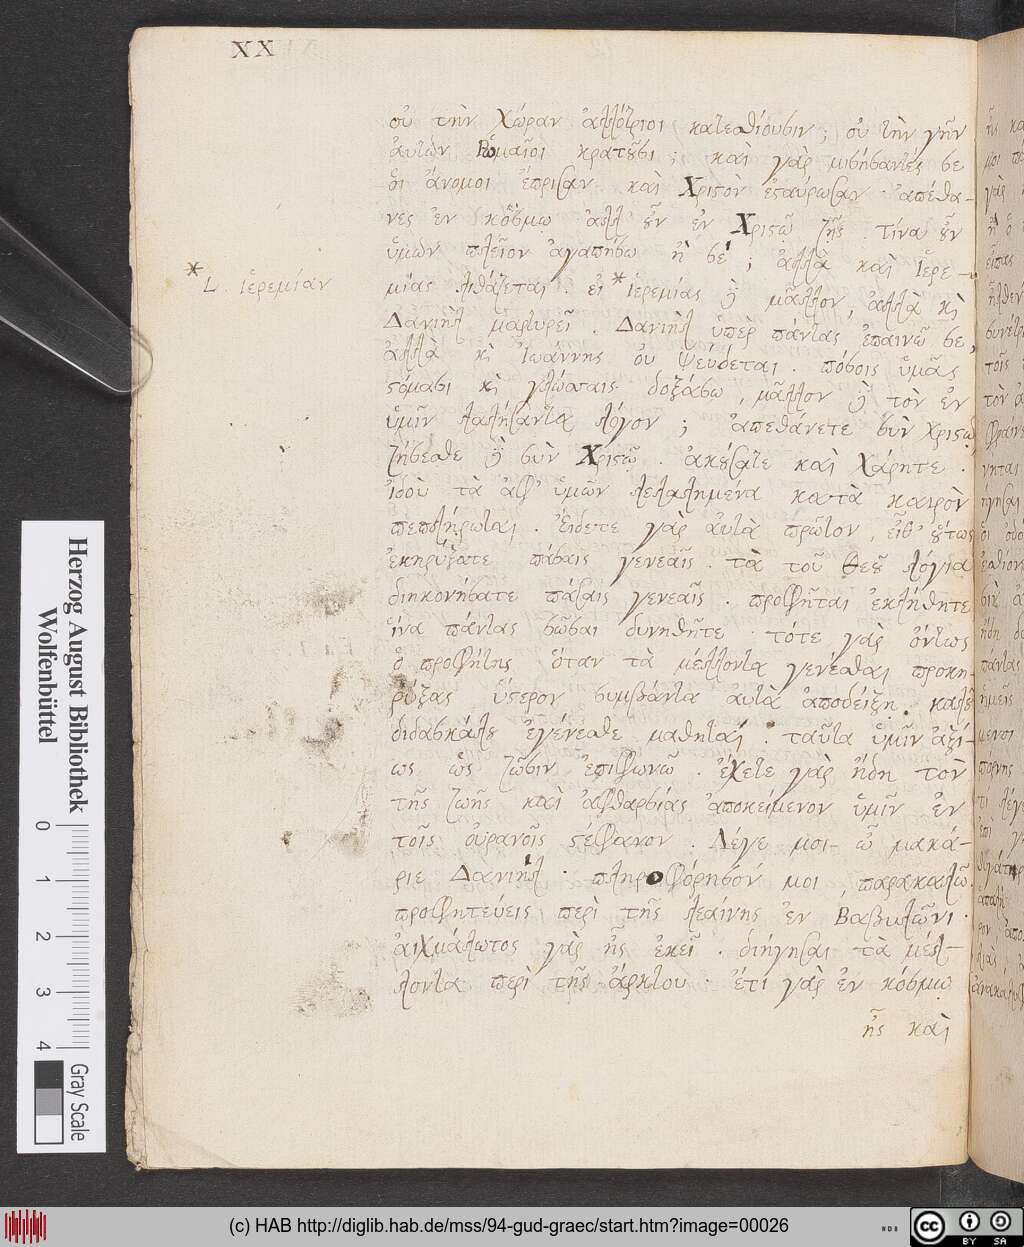 XX
οὐ τὴν Χώραν ἀλλότριοι κατεσθίουσιν; οὐ τὴν γῆν
ἀυτῶν Ῥωμαῖοι κρατȣ͂σι; καὶ γὰρ μισήσαντές σε
ὁι ἄνομοι ἐπρισαν· καὶ Χριϛὸν ἐϛαύρωσαν· ἀπέθα-
νες ἐν κόσμω ἀλλ' ȣ͂ν ἐν Χριϛῷ ζῇς· τίνα ȣ͂ν
ὑμῶν πλεῖον ἀγαπήσω ἢ σέ; ἀλλὰ καὶ Ἱερε-
* L. Ἱερεμίαν
μίας λιθάζεται. εἰ * Ἱερεμίας ϗ μᾶλλον, ἀλλὰ ϗ
Δανιὴλ μαρτυρεῖ. Δανιὴλ ὑπὲρ πάντας ἐπαινῶ σε,
ἀλλὰ ϗ Ἰωάννης οὐ ψεύδεται. πόσοις ὑμᾶς
ϛόμασι ϗ γλώσσαις δοξάσω, μᾶλλον ϗ τὸν ἐν
ὑμῖν λαλήσαντα λόγον; ἀπεθάνετε σὺν Χριϛῷ
ζήσεσθε ϗ σὺν Χριϛῷ. ἀκȣ́σατε καὶ Χάρητε.
ἰδοὺ τὰ ἀφ' ὑμῶν λελαλημένα κατὰ καιρὸν
πεπλήρωται. Ἐίδετε γὰρ ἀυτὰ πρῶτον, εἶθ' ȣ́τως
ἐκηρύξατε πάσαις γενεαῖς. τὰ τοῦ Θεȣ͂ λόγια
διηκονήσατε πάσαις γενεαῖς. προφῆται ἐκλήθητε
ἵνα πάντας σῶσαι δυνηθῆτε τότε γὰρ ὄντως
ὁ προφήτης ὅταν τὰ μέλλοντα γενέσθαι προκη-
ρύξας ὕϛερον συμβάντα ἀυτὰ ἀποδείξῃ. καλȣ͂
διδασκάλȣ ἐγένεσθε μαθηταί. ταῦτα ὑμῖν ἀξί-
ως ὡς ζῶσιν ἐπιφωνῶ. ἔχετε γὰρ ἤδη τὸν
τῆς ζωῆς καὶ ἀφθαρσίας ἀποκείμενον ὑμῖν ἐν
τοῖς οὐρανοῖς ϛέφανον. Λέγε μοι ὦ μακά-
ριε Δανιήλ. πληροφόρησόν μοι, παρακαλῶ.
προφητεύεις περὶ τῆς λεαίνης ἐν Βαβυλῶνι.
ἀιχμάλωτος γὰρ ἦς ἐκεῖ. διήγησαι τὰ μέλ-
λοντα περὶ τῆς ἄρκτου. ἔτι γὰρ ἐν κόσμω
ἦς καὶ
Herzog August Bibliothek
Wolfenbüttel
0 1 2 3 4
Gray Scale
(c) HAB http://diglib.hab.de/mss/94-gud-graec/start.htm?image=00026
WDB
cc BY SA